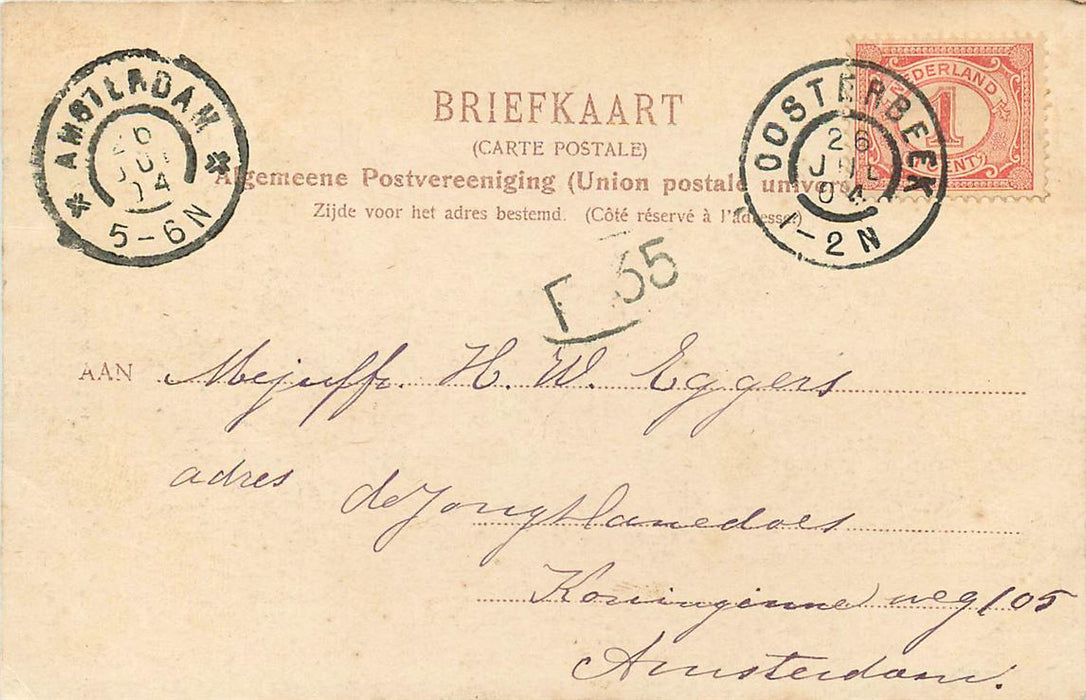 AMSTERDAM
26
JUL
04
5-6N
OOSTERBEEK
26
JUL
04
1-2N
NEDERLAND
1
CENT
BRIEFKAART
(CARTE POSTALE)
Algemeene Postvereeniging (Union postale univers
Zijde voor het adres bestemd. (Côté réservé à l'adresse.)
F 35
AAN Mejuffr. H. W. Eggers
adres de Jongh
Koninginneweg 105
Amsterdam.